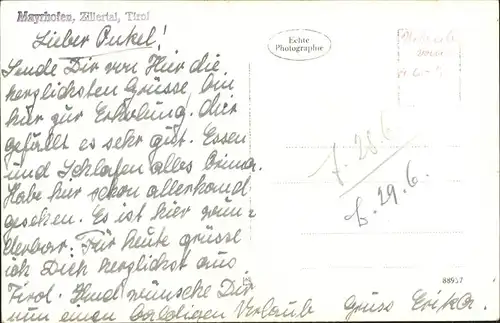 Mayrhofen, Zillertal, Tirol
Lieber Onkel!
Sende Dir von Hier die
herzlichsten Grüsse, bin
hier zur Erholung. Mir
gefällt es sehr gut. Essen
und Schlafen alles Prima.
Habe hier schon allerhand
gesehen. Es ist hier wun-
derbar. Für heute grüsse
ich Dich herzlichst aus
Tirol. Und wünsche Dir
nun einen baldigen Verlaub Gruss Erika.
Echte
Photographie
7. 28.6
b. 29.6.
88957